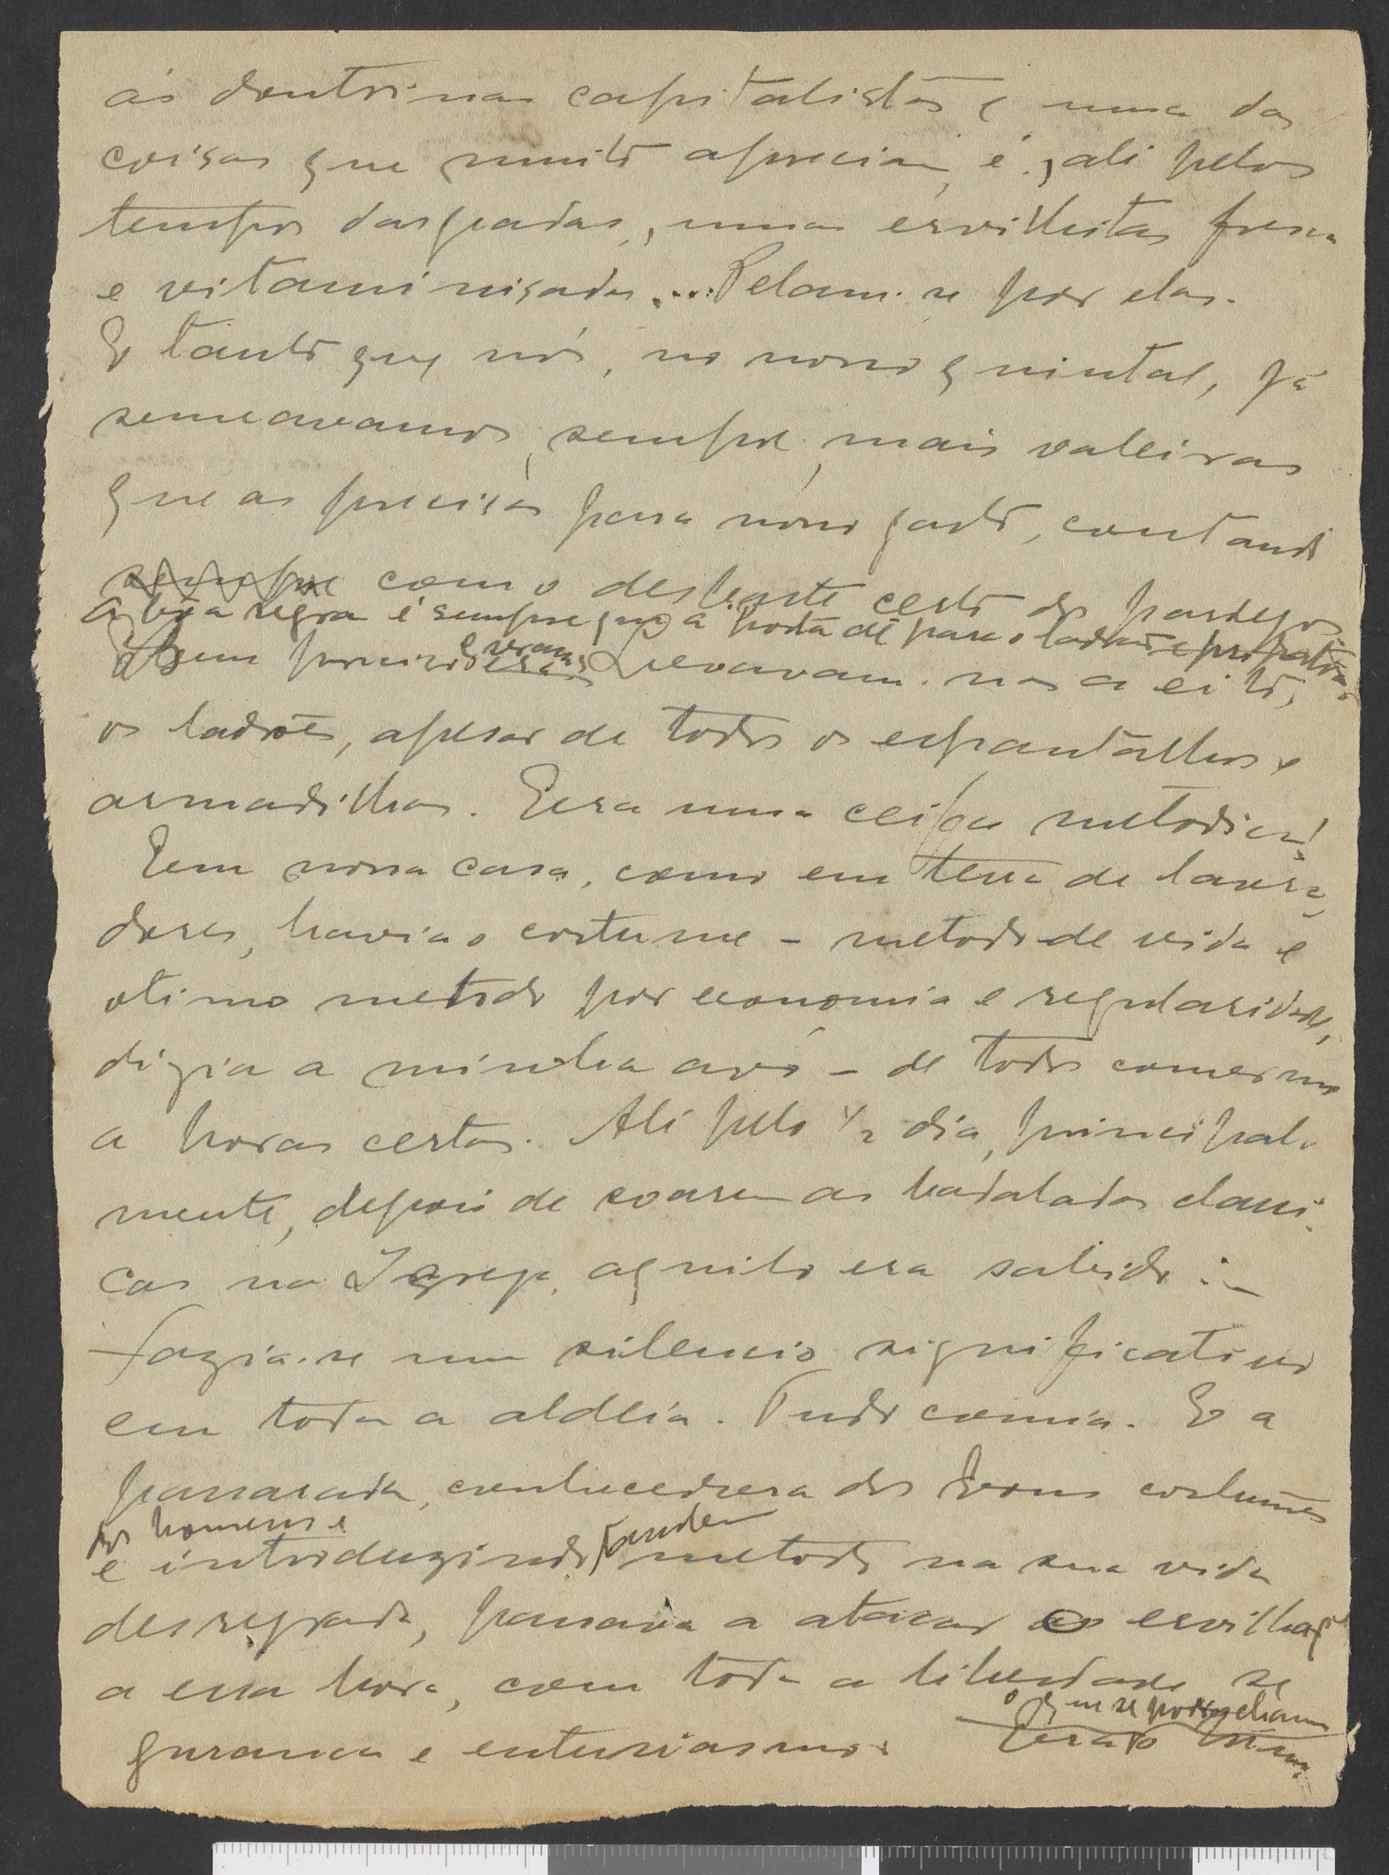 ás doutrinas capitalistas e uma das
coisas que muito apreciam, é, ali pelos
tempos das geadas, umas ervilhitas fresca
e vitaminisadas... Pelam-se por elas.
E tanto que nós, no nosso quintal, já
semeavamos, sempre, mais valeiras
que as precisas para nosso gasto, contando
sempre com o desbaste certo dos pardejos
A bôa regra é sempre que a horta dê para o ladrão e
Bem preciso Levavam-nas a eito,
os ladrões, apesar de todos os espantalhos e
armadilhas. Era uma ceifa metodica!
Em nossa casa, como em terra de lavra-
dores, havia o costume - metodo de vida e
otimo metodo por economia e regularidade,
dizia a minha avó - de todos comermos
a horas certas. Ali pelo 1/2 dia, principal-
mente, depois de soarem as badaladas classi-
cas na Igreja, aquilo era sabido :-
fazia-se um silencio significativo
em toda a aldeia. Tudo comia. E a
passarada, conhecedora dos bons costumes
dos homens e
e introduzindo tambem metodo na sua vida
desregrada, passava a atacar as ervilhas
a essa hora, com toda a liberdade, se
gurança e entusiasmo.